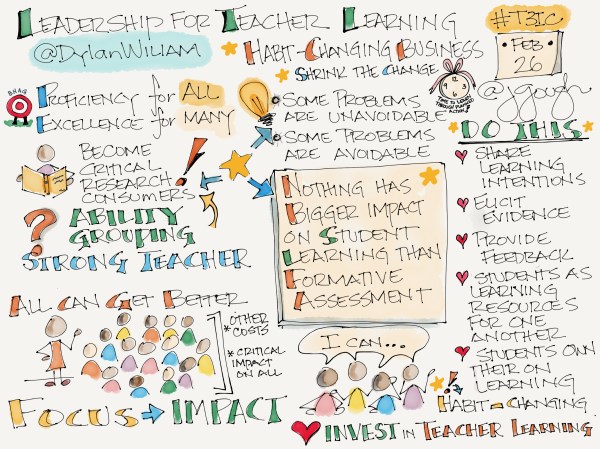 LEADERSHIP FOR TEACHER LEARNING
@DylanWiliam
#T3IC
FEB
26
@jgough
* HABIT-CHANGING BUSINESS
* SHRINK THE CHANGE
BHAG
PROFICIENCY for ALL
EXCELLENCE for MANY
• SOME PROBLEMS
ARE UNAVOIDABLE
• SOME PROBLEMS
ARE AVOIDABLE
BECOME
CRITICAL
RESEARCH
CONSUMERS
!
? ABILITY
GROUPING
STRONG TEACHER
NOTHING HAS
BIGGER IMPACT
ON STUDENT
LEARNING THAN
FORMATIVE
ASSESSMENT
* DO THIS *
SHARE
LEARNING
INTENTIONS
ELICIT
EVIDENCE
PROVIDE
FEEDBACK
STUDENTS AS
LEARNING
RESOURCES
FOR ONE
ANOTHER
STUDENTS OWN
THEIR OWN
LEARNING
ALL CAN GET BETTER
* OTHER
COSTS
* CRITICAL
IMPACT
ON ALL
FOCUS → IMPACT
I CAN...
!
HABIT-CHANGING
INVEST IN TEACHER LEARNING